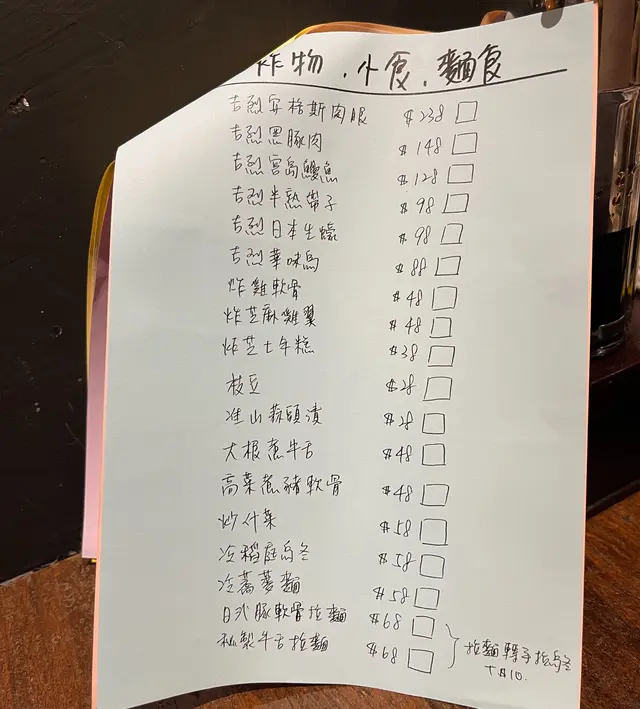 炸物、小食、麵食
吉烈安格斯肉眼 $238
吉烈黑豚肉 $148
吉烈宮崎鰻魚 $128
吉烈半熟帶子 $98
吉烈日本生蠔 $98
吉烈華味鳥 $88
炸雞軟骨 $48
炸芝麻雞翼 $48
炸芝士年糕 $38
枝豆 $28
淮山蒜頭漬 $28
大根煮牛舌 $48
高菜煮豬軟骨 $48
炒什菜 $58
冷稻庭烏冬 $58
冷蕎麥麵 $58
日式豚軟骨拉麵 $68
秘製牛舌拉麵 $68
拉麵轉手拉烏冬
+$10.